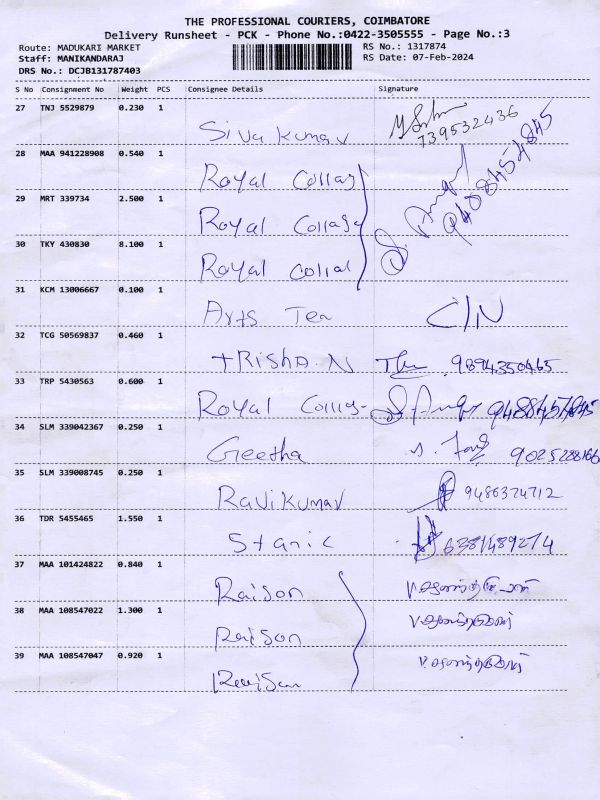 THE PROFESSIONAL COURIERS, COIMBATORE
Delivery Runsheet - PCK - Phone No.:0422-3505555 - Page No.:3
Route: MADUKARI MARKET RS No.: 1317874
Staff: MANIKANDARAJ RS Date: 07-Feb-2024
DRS No.: DCJB131787403
S No Consignment No Weight PCS Consignee Details Signature
27 TNJ 5529879 0.230 1
Siva kumar 739532436
28 MAA 941228908 0.540 1
Royal Collag
29 MRT 339734 2.500 1
Royal Collage
30 TKY 430830 8.100 1
Royal Collal
31 KCM 13006667 0.100 1
Arts Tea C/N
32 TCG 50569837 0.460 1
tRisha.N 9894350465
33 TRP 5430563 0.600 1
Royal
34 SLM 339042367 0.250 1
Geetha
35 SLM 339008745 0.250 1
Ravikumar 9486374712
36 TDR 5455465 1.550 1
Stanic 6381489274
37 MAA 101424822 0.840 1
Raison
38 MAA 108547022 1.300 1
Raison
39 MAA 108547047 0.920 1